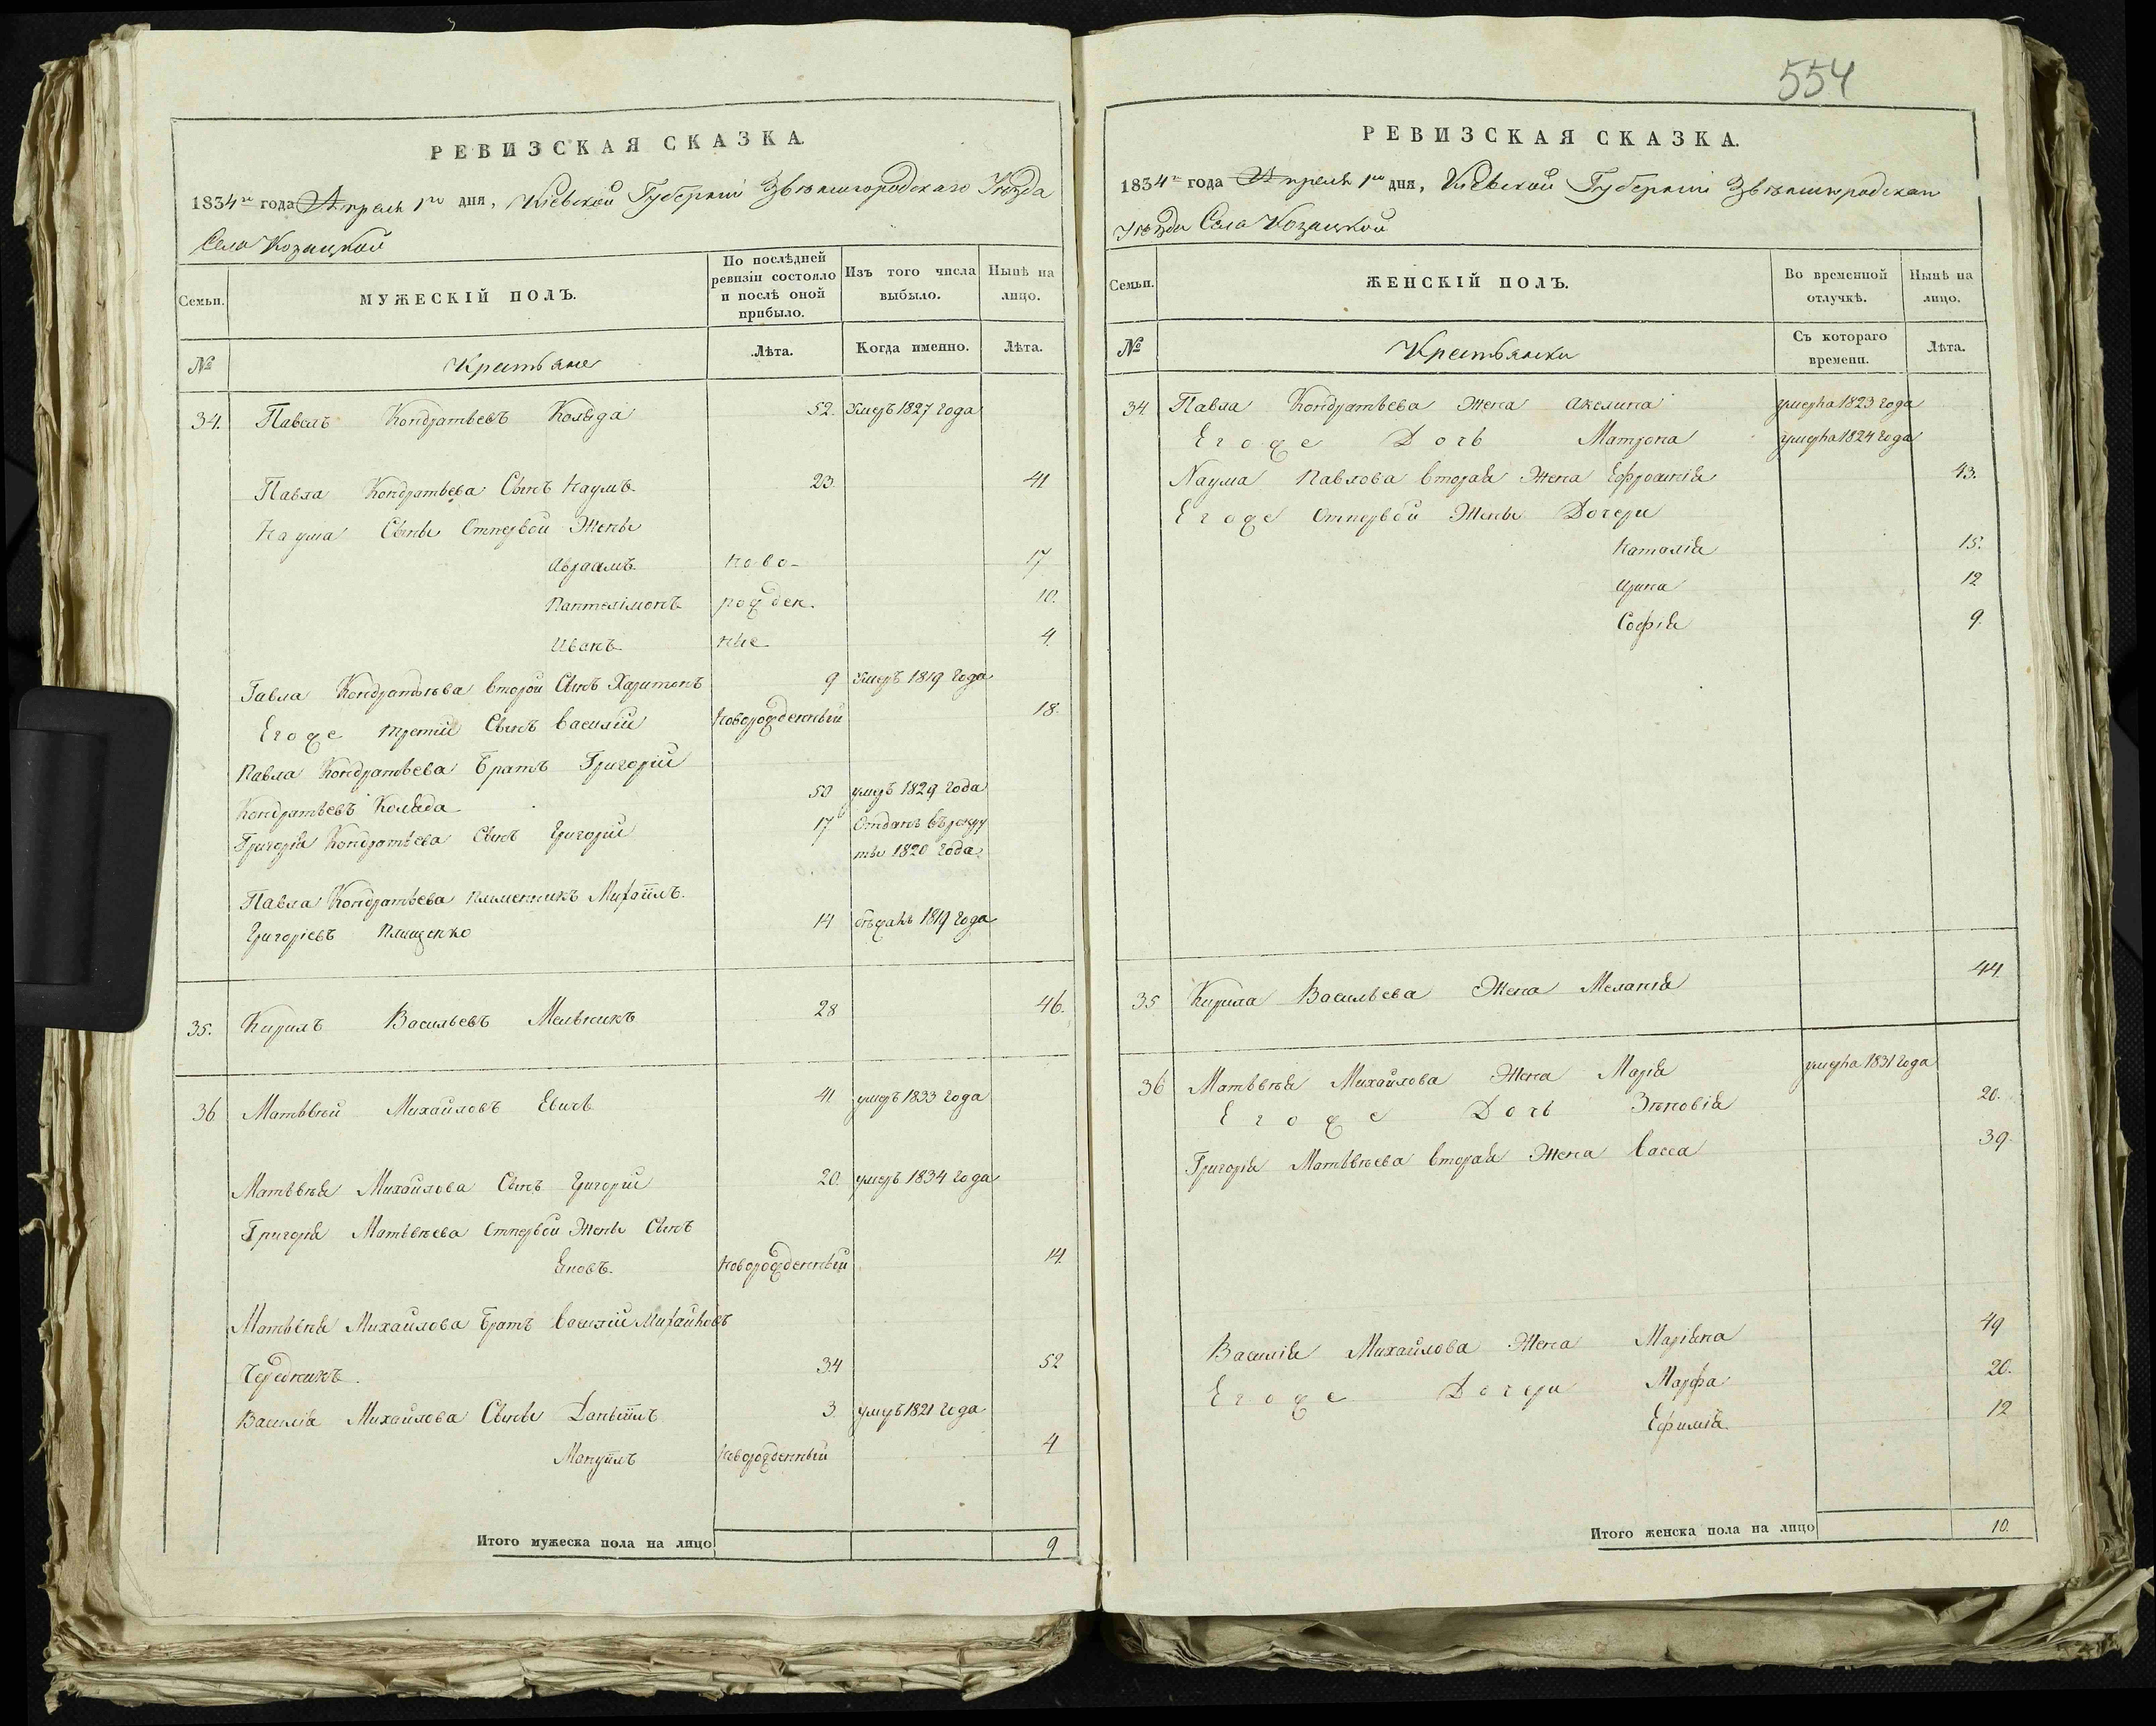 РЕВИЗСКАЯ СКАЗКА.
1834го года Апреля 1го дня, Кіевской Губерніи Звенигородскаго Уѣзда
Села Козацкой
Семьи.
МУЖЕСКІЙ ПОЛЪ.
По послѣдней ревизіи состояло и послѣ оной прибыло.
Изъ того числа выбыло.
Нынѣ на лицо.
№
Крестьяне
Лѣта.
Когда именно.
Лѣта.
34. Павелъ Кондратьевъ Кольда 52. Умеръ 1827 года
Павла Кондратьева Сынъ Наумъ 23. 41
Наума Сыны Отпервой Жены
Авраамъ Ново- 17
Пантелімонъ рожден. 10.
Иванъ ные 4.
Павла Кондратьева второй Сынъ Харитонъ 9 Умеръ 1819 года
Егоже третій Сынъ Василій Новорожденный 18.
Павла Кондратьева Братъ Григорій
Кондратьевъ Коляда 50 умеръ 1829 года
Григорія Кондратьева Сынъ Григорій 17 Отданъ въ рекру
ты 1820 года
Павла Кондратьева племенникъ Михаіилъ
Григоріевъ Плищенко 14 бѣжалъ 1819 года
35. Кирилъ Васильевъ Мельникъ 28 46.
36 Матьвѣй Михайловъ 41 умеръ 1833 года
Матьвѣя Михайлова Сынъ Григорій 20. умеръ 1834 года
Григорія Матьвѣева Отпервой Жены Сынъ
Яковъ. Новорожденный 14.
Матьвѣя Михайлова Братъ Василій Михайловъ
Чередникъ. 34 52
Василія Михайлова Сыны Даніилъ 3 умеръ 1821 года
Мануилъ Новорожденный 4
Итого мужеска пола на лицо 9
554
РЕВИЗСКАЯ СКАЗКА.
1834го года Апреля 1го дня, Кіевской Губерніи Звенигродскаго
Уѣзда Села Козацкой
Семьи.
ЖЕНСКІЙ ПОЛЪ.
Во временной отлучкѣ.
Нынѣ на лицо.
№
Крестьянки
Съ котораго времени.
Лѣта.
34 Павла Кондратьева Жена Акелина умерла 1823 года
Егоже Дочь Матрона умерла 1824 года
Наума Павлова вторая Жена Ефросинія 43.
Егоже Отпервой Жены Дочери
Наталія 15.
Ирина 12
Софія 9.
35 Кирила Васильева Жена Меланія 44.
36 Матьвѣя Михайлова Жена Марія умерла 1831 года
Егоже Дочь Зѣновія 20.
Григорія Матьвѣева вторая Жена Васса 39.
Василія Михайлова Жена Маріяна 49
Егоже Дочери Марфа 20.
Ефимія 12
Итого женска пола на лицо 10.